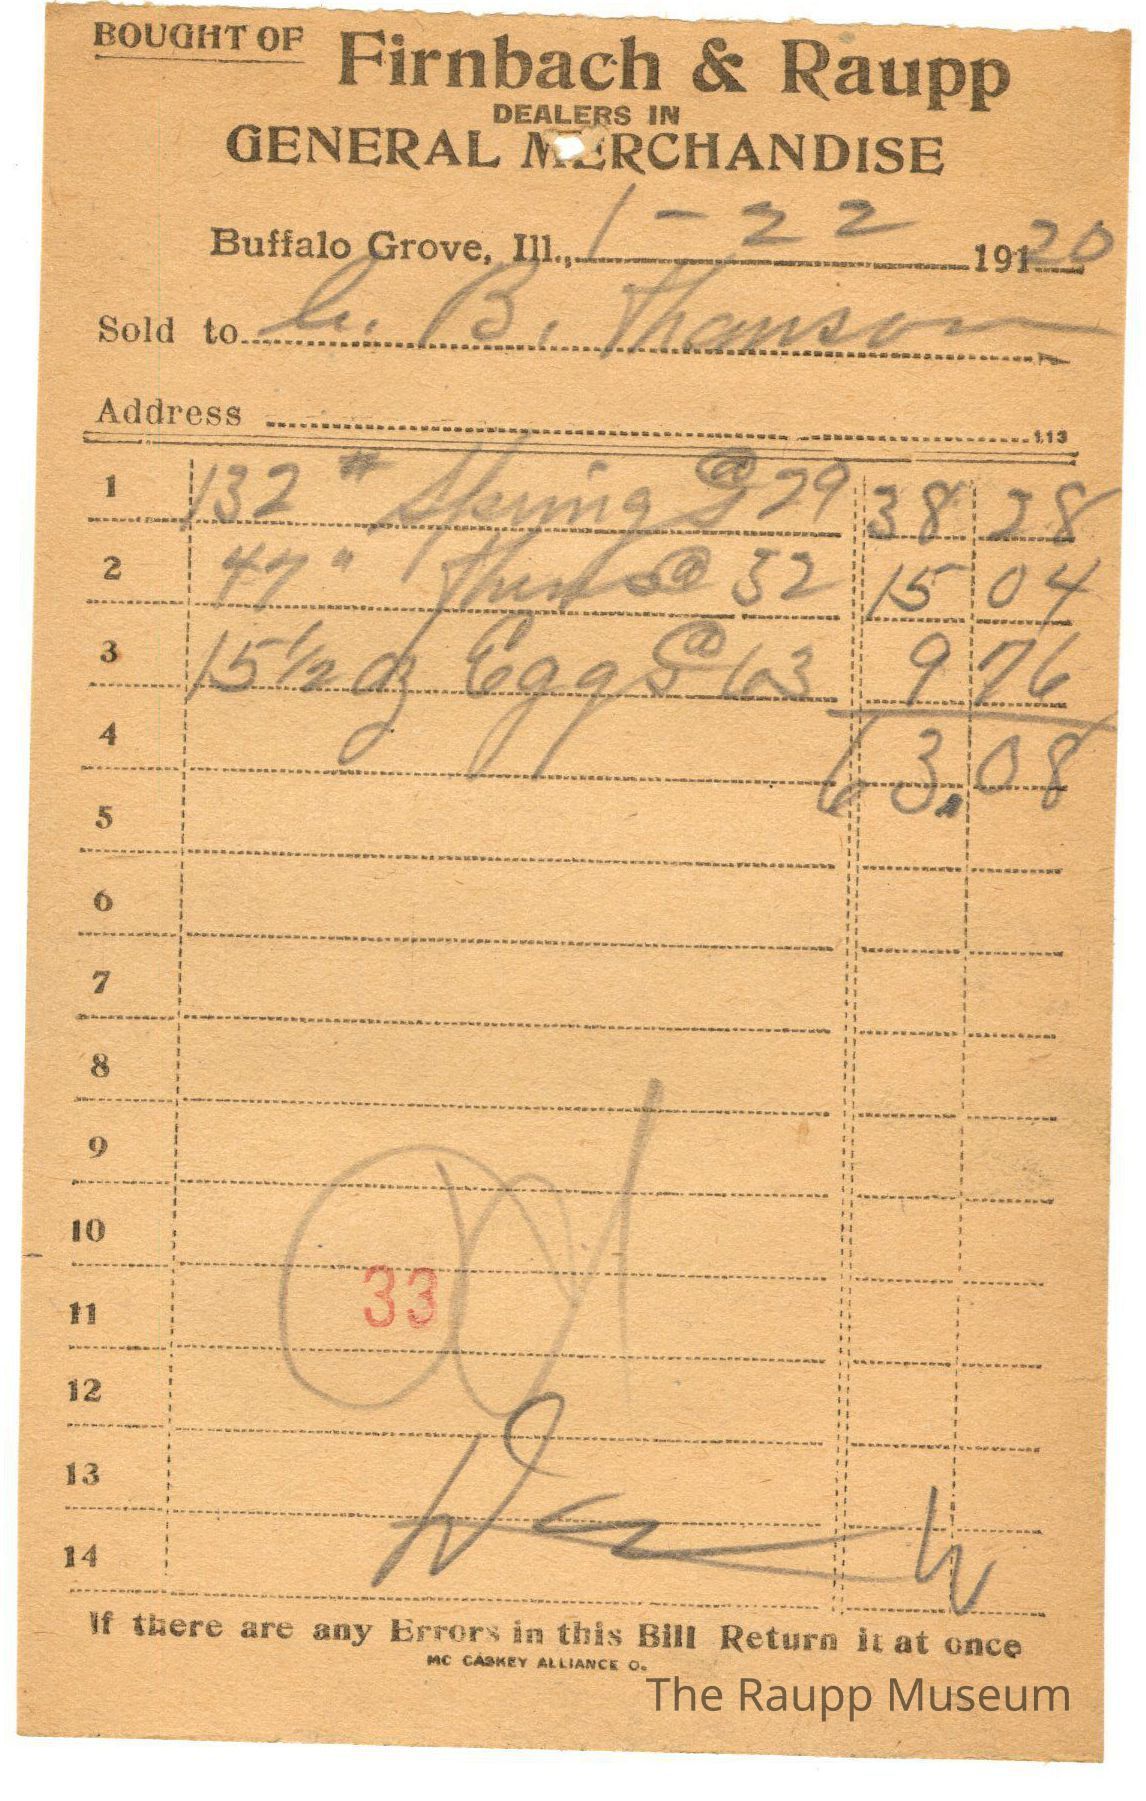 BOUGHT OF Firnbach & Raupp
DEALERS IN
GENERAL MERCHANDISE
Buffalo Grove, Ill., 1-22 191 20
Sold to B. Thomson
Address
113
1 132 # Spring @ 29 38 28
2 47 " @ 32 15 04
3 15 1/2 dz Eggs @ 63 9 76
4 63.08
5
6
7
8
9
10
33
11
12
13
14
If there are any Errors in this Bill Return it at once
MC CASKEY ALLIANCE O.
The Raupp Museum